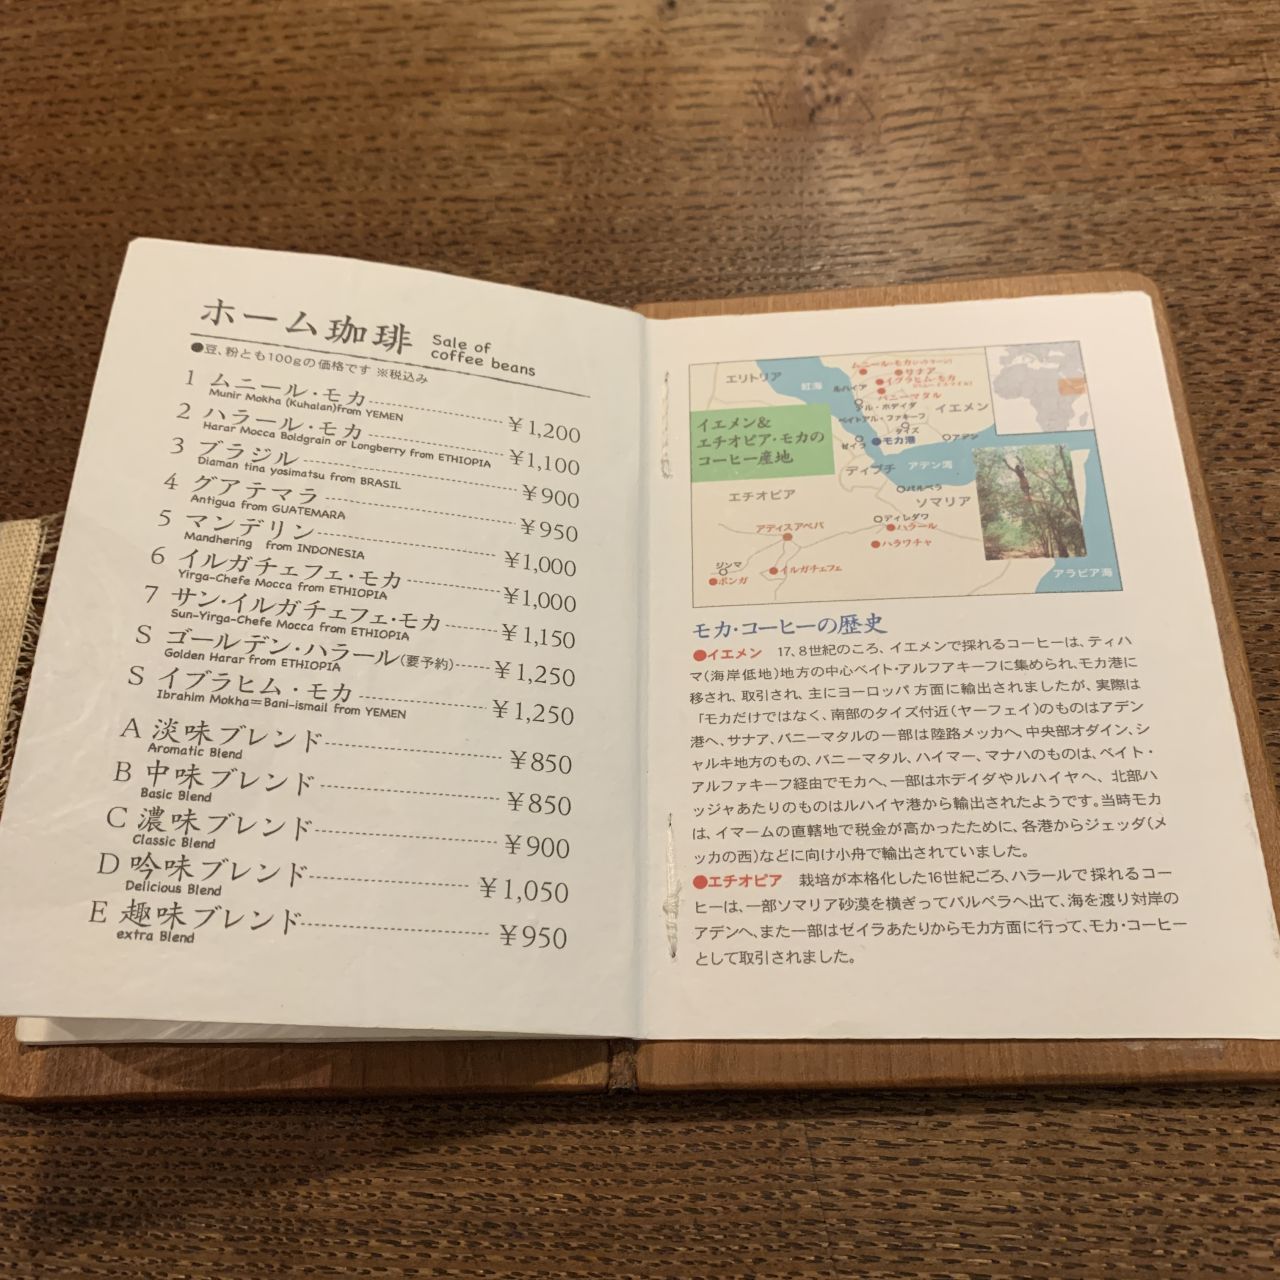 ホーム珈琲 Sale of coffee beans
●豆、粉とも100gの価格です ※税込み
1 ムニール・モカ ¥1,200
Munir Mokha (Kuhalan)from YEMEN
2 ハラール・モカ ¥1,100
Harar Mocca Boldgrain or Longberry from ETHIOPIA
3 ブラジル ¥900
Diaman tina yosimatsu from BRASIL
4 グアテマラ ¥950
Antigua from GUATEMARA
5 マンデリン ¥1,000
Mandhering from INDONESIA
6 イルガチェフェ・モカ ¥1,000
Yirga-Chefe Mocca from ETHIOPIA
7 サン・イルガチェフェ・モカ ¥1,150
Sun-Yirga-Chefe Mocca from ETHIOPIA
S ゴールデン・ハラール(要予約) ¥1,250
Golden Harar from ETHIOPIA
S イブラヒム・モカ ¥1,250
Ibrahim Mokha=Bani-ismail from YEMEN
A 淡味ブレンド ¥850
Aromatic Blend
B 中味ブレンド ¥850
Basic Blend
C 濃味ブレンド ¥900
Classic Blend
D 吟味ブレンド ¥1,050
Delicious Blend
E 趣味ブレンド ¥950
extra Blend
イエメン&
エチオピア・モカの
コーヒー産地
エリトリア
紅海
ムニール・モカ
サナア
ルハイア
イブラヒム・モカ
バニーマタル
アル・ホデイダ
イエメン
ベイトアル・ファキーフ
タイズ
モカ港
アデン
ゼイラ
ディブチ
アデン湾
エチオピア
バルベラ
ソマリア
アディスアベバ
ディレダワ
ハラール
ハラワチャ
ジンマ
ボンガ
イルガチェフェ
アラビア海
モカ・コーヒーの歴史
●イエメン 17、8世紀のころ、イエメンで採れるコーヒーは、ティハ
マ(海岸低地)地方の中心ベイト・アルファキーフに集められ、モカ港に
移され、取引され、主にヨーロッパ方面に輸出されましたが、実際は
「モカだけではなく、南部のタイズ付近(ヤーフェイ)のものはアデン
港へ、サナア、バニーマタルの一部は陸路メッカへ、中央部オダイン、シ
ャルキ地方のもの、バニーマタル、ハイマー、マナハのものは、ベイト・
アルファキーフ経由でモカへ、一部はホデイダやルハイヤへ、北部ハ
ッジャあたりのものはルハイヤ港から輸出されたようです。当時モカ
は、イマームの直轄地で税金が高かったために、各港からジェッダ(メ
ッカの西)などに向け小舟で輸出されていました。
●エチオピア 栽培が本格化した16世紀ごろ、ハラールで採れるコー
ヒーは、一部ソマリア砂漠を横ぎってバルベラへ出て、海を渡り対岸の
アデンへ、また一部はゼイラあたりからモカ方面に行って、モカ・コーヒー
として取引されました。